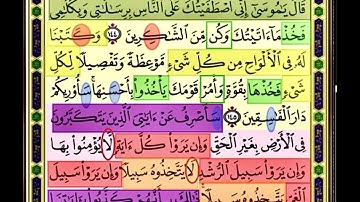 قَالَ يَٰمُوسَىٰٓ إِنِّي ٱصْطَفَيْتُكَ عَلَى ٱلنَّاسِ بِرِسَٰلَٰتِي وَبِكَلَٰمِي
فَخُذْ مَآ ءَاتَيْتُكَ وَكُن مِّنَ ٱلشَّٰكِرِينَ ١٤٤ وَكَتَبْنَا
لَهُۥ فِي ٱلْأَلْوَاحِ مِن كُلِّ شَيْءٍ مَّوْعِظَةً وَتَفْصِيلًا لِّكُلِّ
شَيْءٍ فَخُذْهَا بِقُوَّةٍ وَأْمُرْ قَوْمَكَ يَأْخُذُوا۟ بِأَحْسَنِهَا سَأُو۟رِيكُمْ
دَارَ ٱلْفَٰسِقِينَ ١٤٥ سَأَصْرِفُ عَنْ ءَايَٰتِيَ ٱلَّذِينَ يَتَكَبَّرُونَ
فِي ٱلْأَرْضِ بِغَيْرِ ٱلْحَقِّ وَإِن يَرَوْا۟ كُلَّ ءَايَةٍ لَّا يُؤْمِنُوا۟ بِهَا
وَإِن يَرَوْا۟ سَبِيلَ ٱلرُّشْدِ لَا يَتَّخِذُوهُ سَبِيلًا وَإِن يَرَوْا۟ سَبِيلَ
ٱلْغَيِّ يَتَّخِذُوهُ سَبِيلًا ذَٰلِكَ بِأَنَّهُمْ كَذَّبُوا۟ بِـَٔايَٰتِنَا